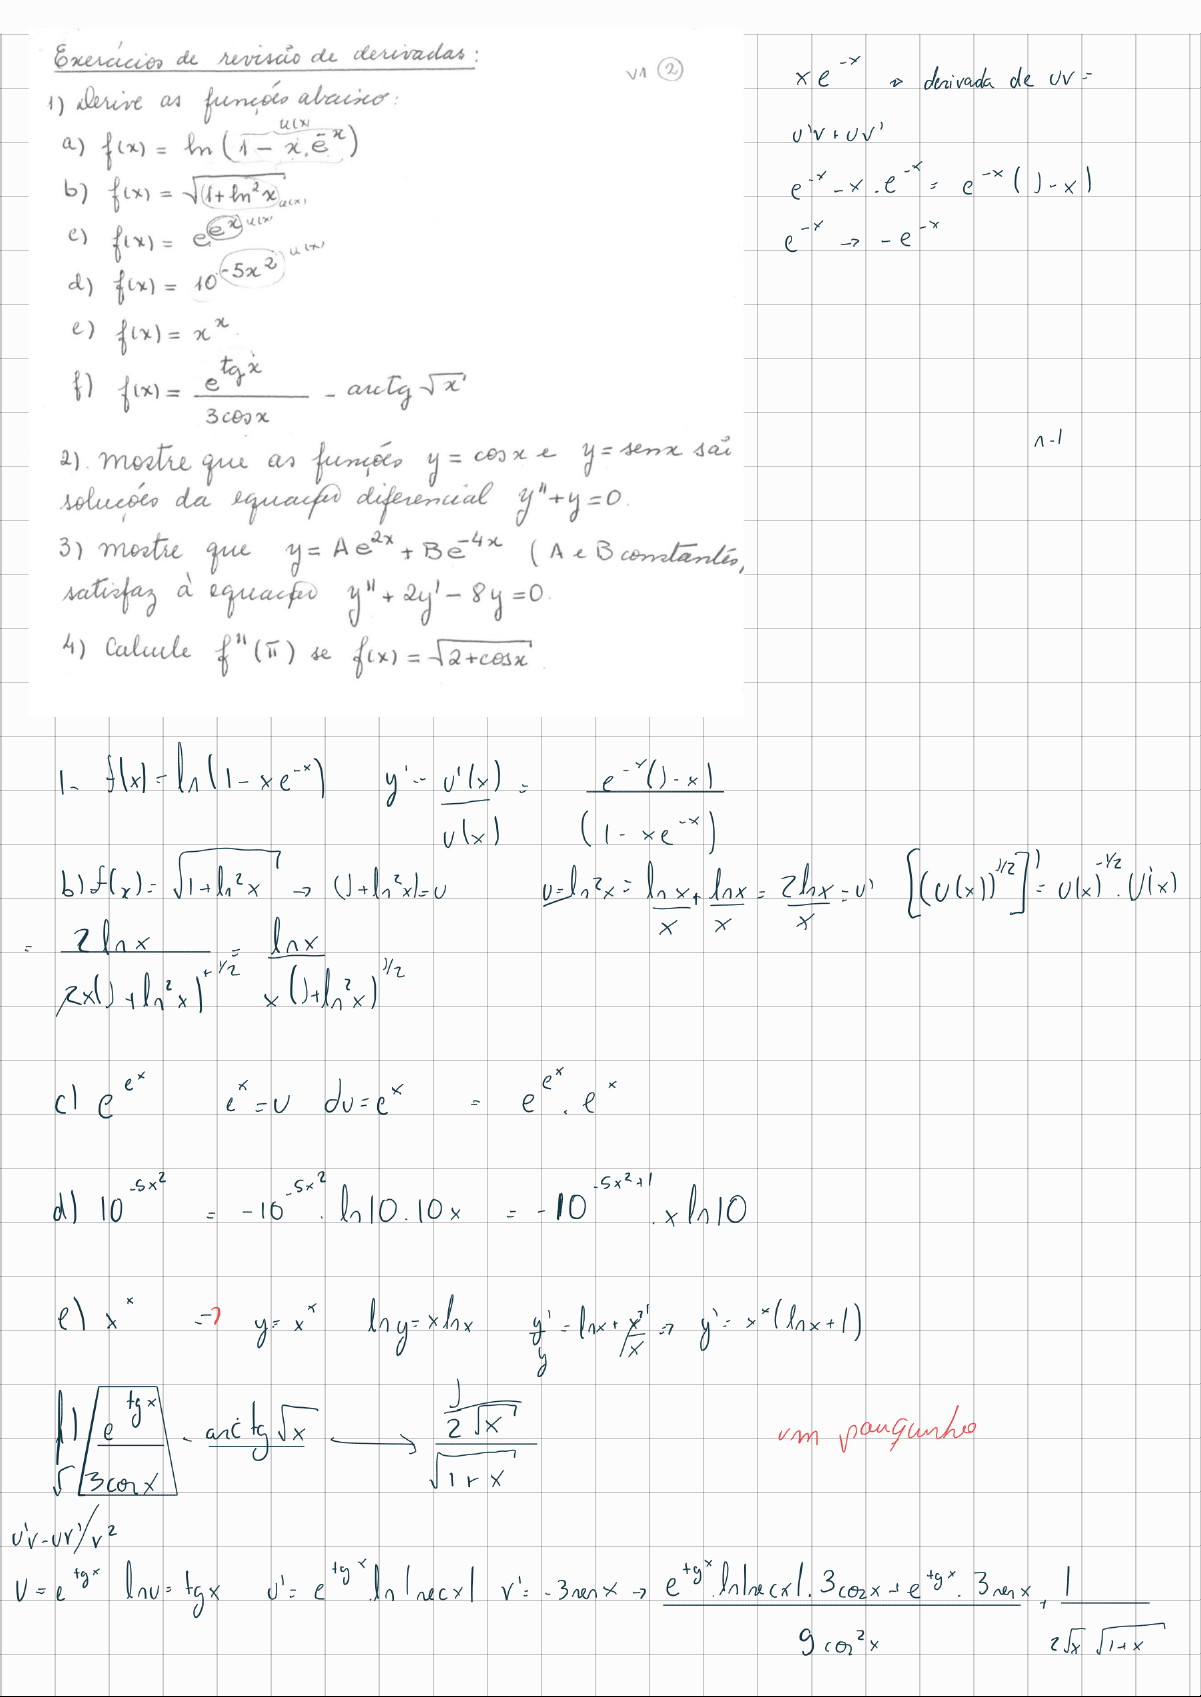 Exercícios de revisão de derivadas:
V1 ②
1) Derive as funções abaixo:
a) f(x) = ln(1 - x.e^-x) u(x)
b) f(x) = √(1+ln²x) u(x)
c) f(x) = e^e^x u(x)
d) f(x) = 10^-5x² u(x)
e) f(x) = x^x
f) f(x) = e^tgx / 3cosx - arctg √x
2). Mostre que as funções y = cosx e y = senx são
soluções da equação diferencial y"+y=0.
3) Mostre que y = Ae^2x + Be^-4x (A e B constantes,
satisfaz à equação y" + 2y' - 8y = 0.
4) Calcule f"(π) se f(x) = √2+cosx.
xe^-x → derivada de uv =
u'v + uv'
e^-x - x.e^-x = e^-x(1-x)
e^-x → -e^-x
n-1
1- f(x) = ln(1-xe^-x) y' = u'(x)/u(x) = e^-x(1-x)/(1-xe^-x)
b) f(x) = √1+ln²x → (1+ln²x) = u u=ln²x = lnx/x + lnx/x = 2lnx/x = u' [(u(x))^1/2]' = u(x)^-1/2 . u'(x)
= 2lnx / 2x(1+ln²x)^+1/2 = lnx / x(1+ln²x)^1/2
c) e^e^x e^x = u du = e^x = e^e^x . e^x
d) 10^-5x² = -10^-5x² . ln10.10x = -10^-5x²+1 . x ln10
e) x^x → y = x^x ln y = x ln x y'/y = lnx + x/x → y' = x^x(lnx+1)
f) e^tgx / 3cosx - arctg √x → 1/2√x / √1+x
um pouquinho
u'v-uv'/v²
u = e^tgx lnu = tgx u' = e^tgx . ln|secx| v' = -3senx → e^tgx . ln|secx| . 3cosx + e^tgx . 3senx / 9cos²x + 1 / 2√x √1+x